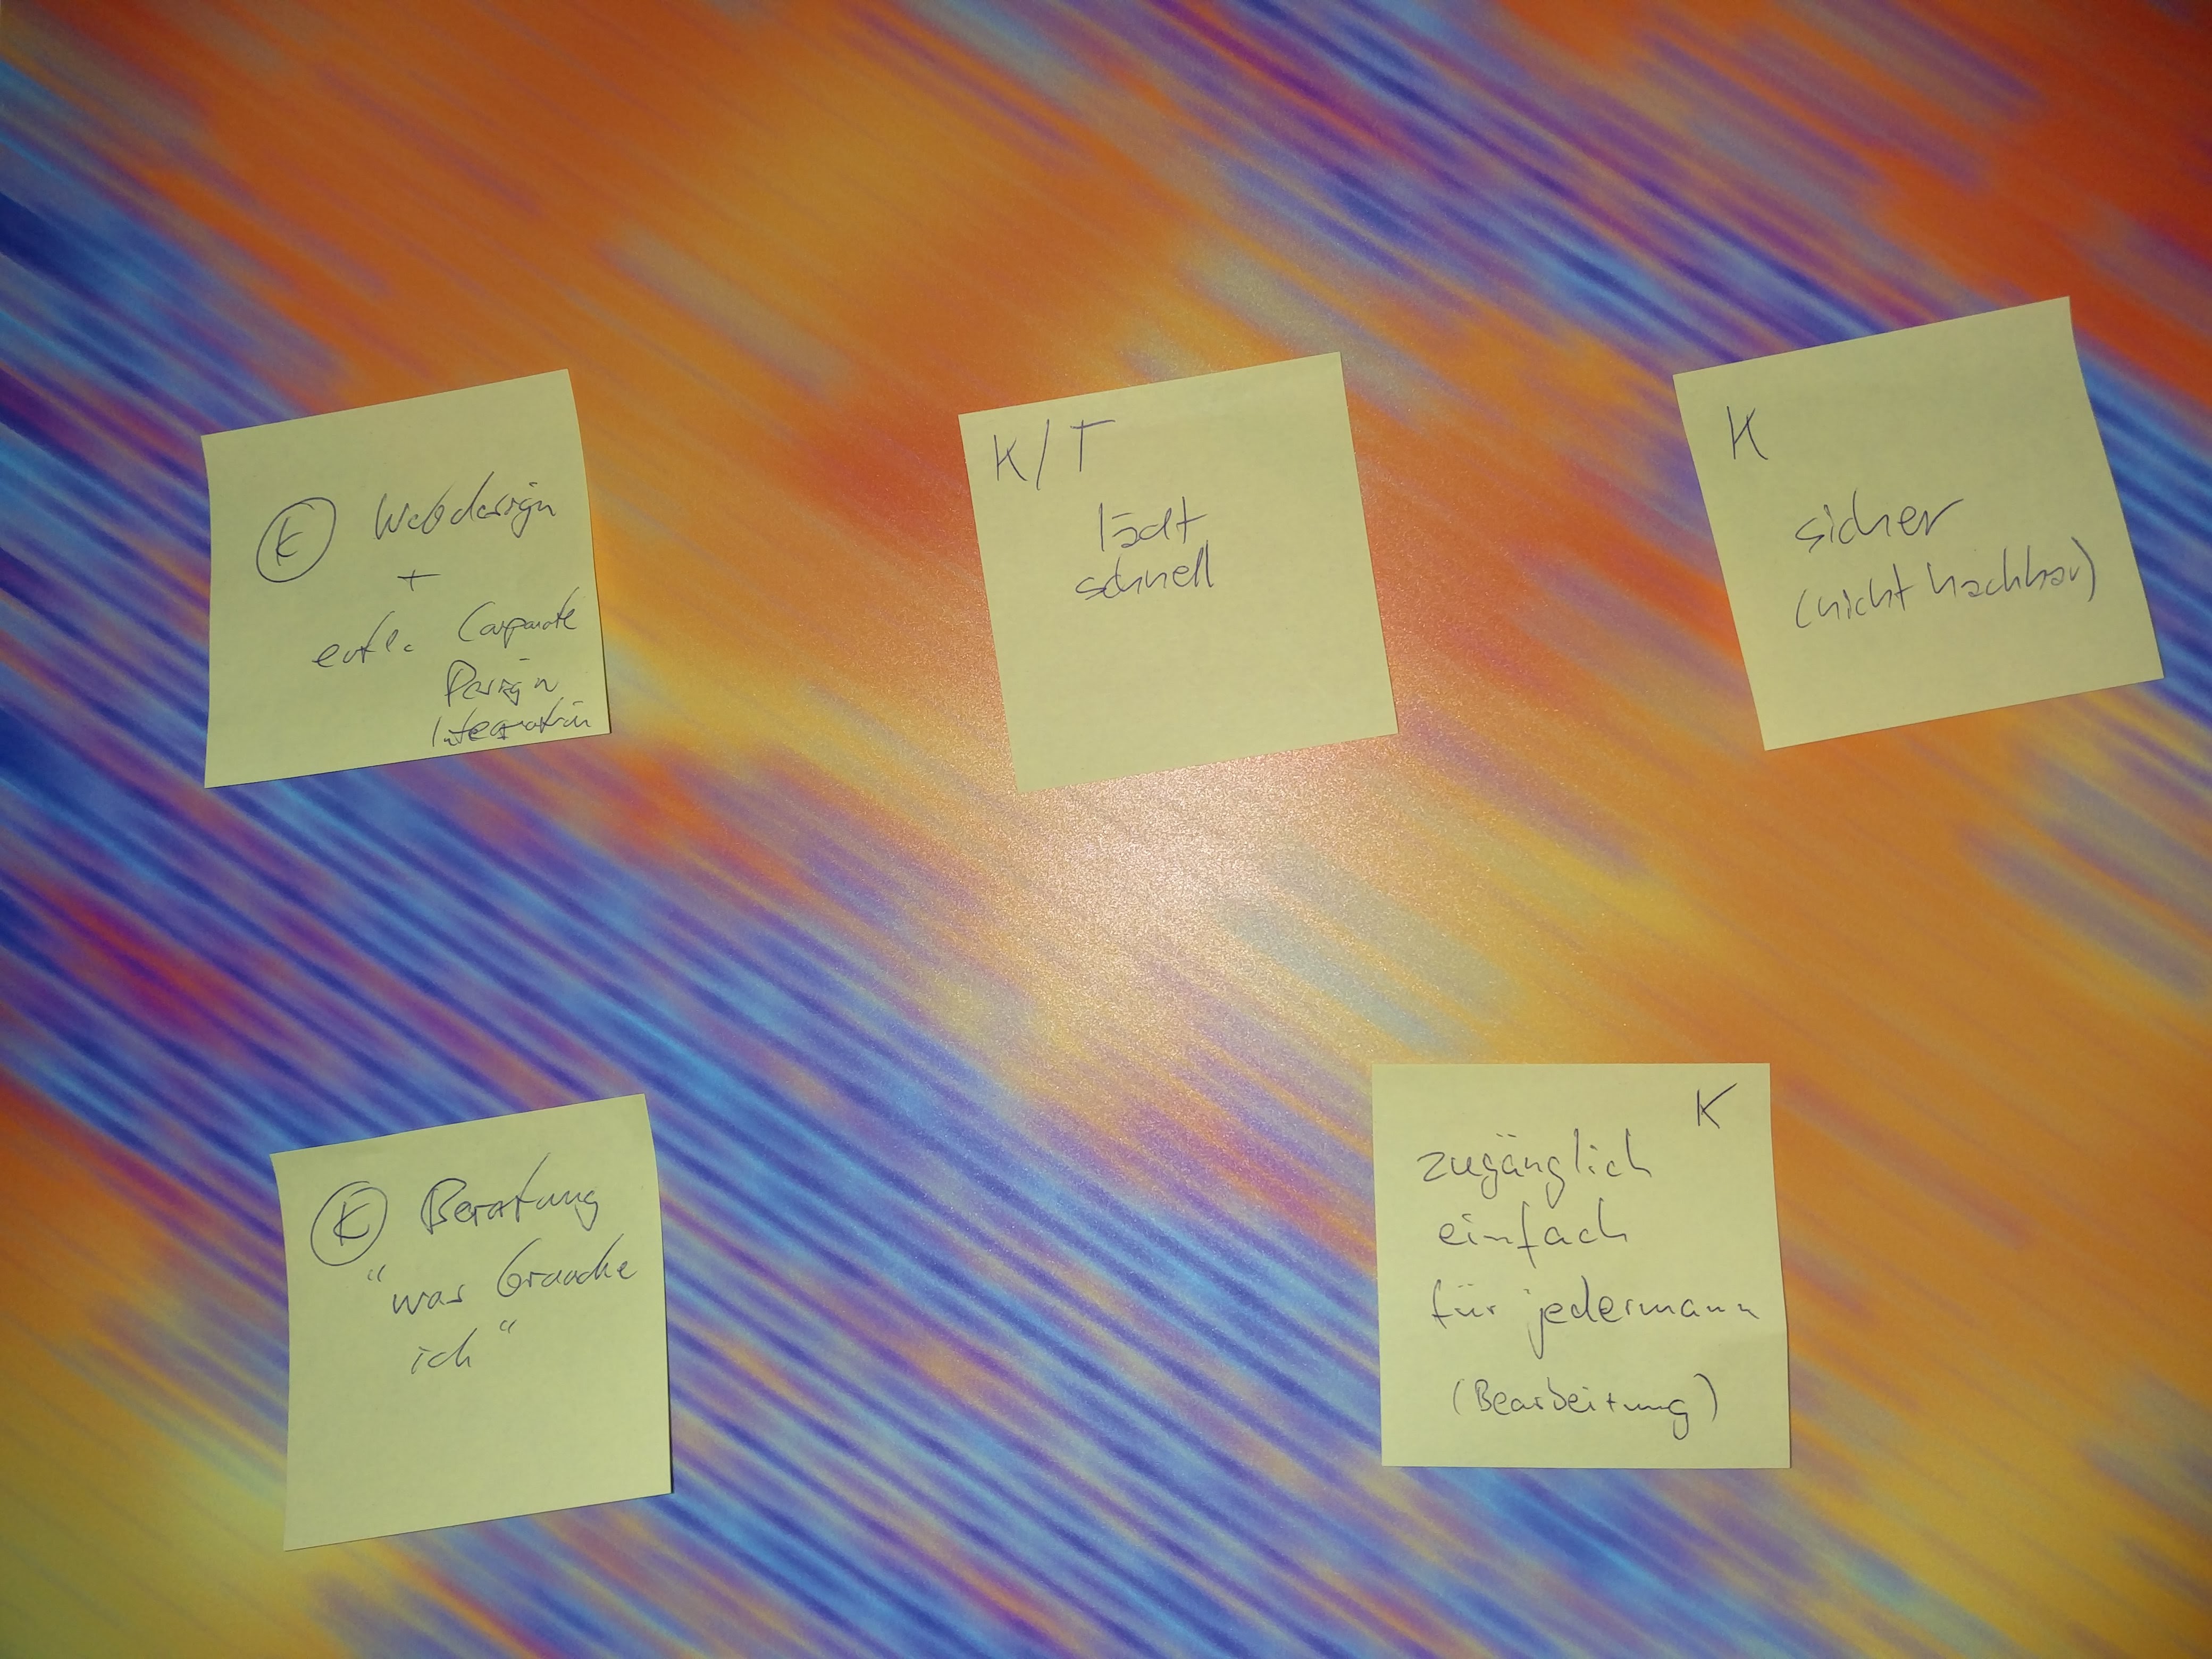 K Webdesign
+
evtl. Corporate
Design
Integration
K/T
lädt
schnell
K
sicher
(nicht hackbar)
K Beratung
"was brauche
ich"
K
zugänglich
einfach
für jedermann
(Bearbeitung)